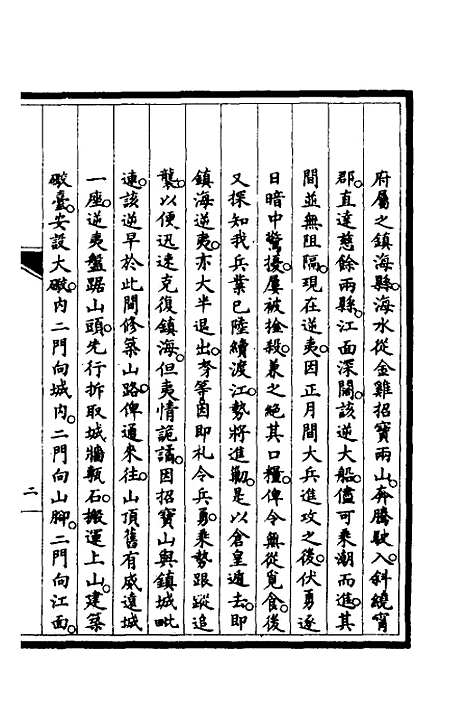 府屬之鎮海縣。海水從金雞招寶兩山。奔騰駛入。斜繞甯
郡。直達慈餘兩縣。江面深闊。該逆大船。儘可乘潮而進。其
間並無阻隔。現在逆夷。因正月間大兵進攻之後。伏勇逐
日暗中驚擾。屢被擒殺。兼之絕其口糧。俾令無從覓食。後
又探知我兵業已陸續渡江。勢將進勦。是以倉皇遁去。即
鎮海逆夷。亦大半退出。等因即札令兵勇。乘勢跟蹤追
襲。以便迅速克復鎮海。但夷情詭譎。因招寶山與鎮城毗
連。該逆早於此間修築山路。俾通來往。山頂舊有威遠城
一座。逆夷盤踞山頭。先行拆取城牆甎石。搬運上山。建築
礮臺。安設大礮。內二門向城內。二門向山腳。二門向江面。
二